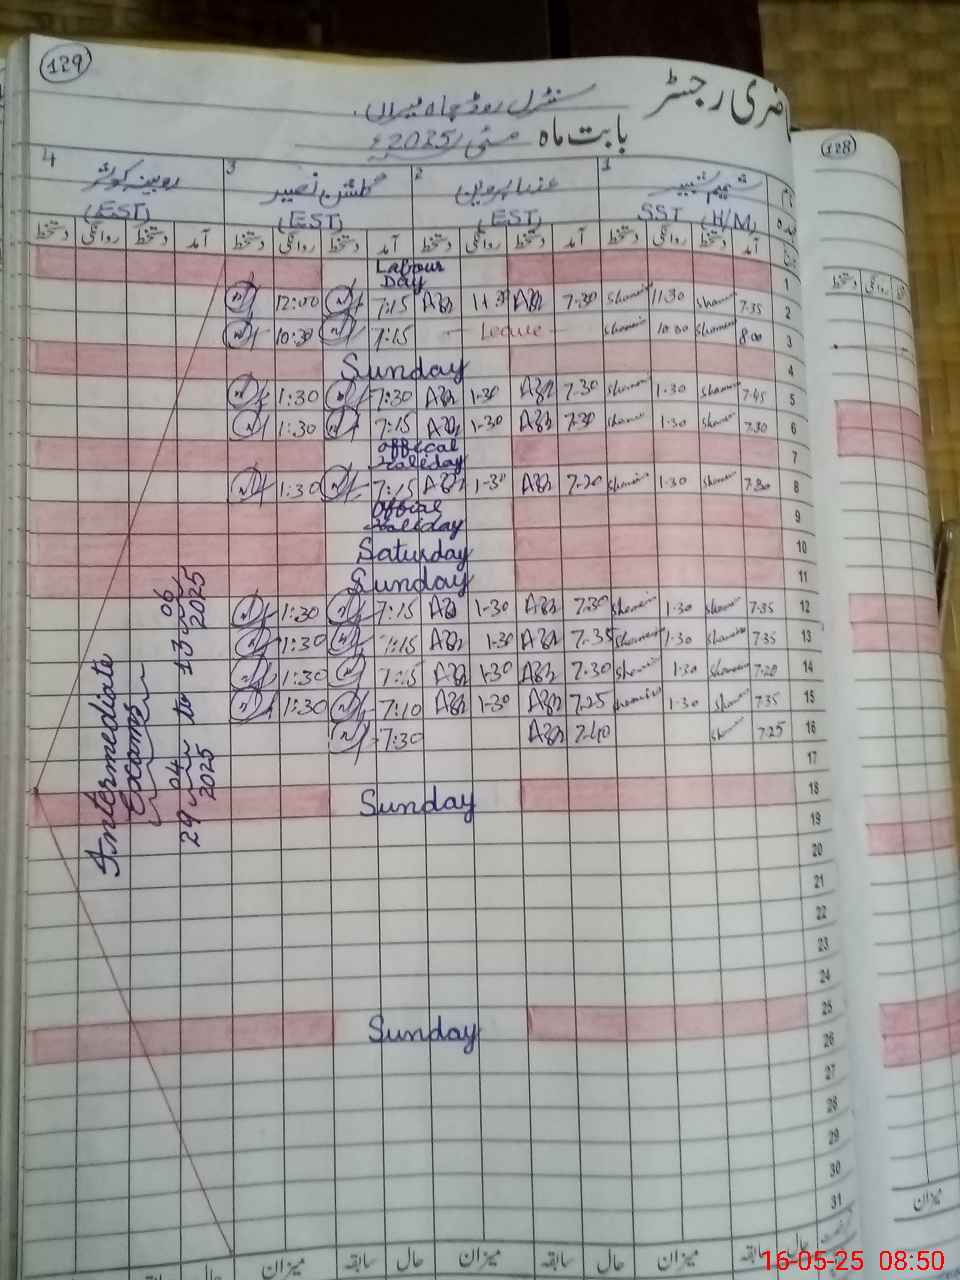 129
حاضری رجسٹر
سنٹرل روڈ چاہ میراں
بابت ماہ مئی 2025ء
128
1 شمیم شبیر SST (H/M)
2 (EST)
3 گلشن نصیر (EST)
4 روبینہ کوثر (EST)
آمد دستخط روانگی دستخط آمد دستخط روانگی دستخط آمد دستخط روانگی دستخط آمد دستخط روانگی دستخط
1 Labour Day
2 7:35 11:30 7:30 7:15 12:00
3 8:00 10:30 Leave 7:15 10:30
4 Sunday
5 7:45 1:30 7:30 1-30 7:30 1:30
6 7:30 1:30 7:30 1-30 7:15 1:30
7 Offical Holiday
8 7:30 1:30 7:20 1-30 7:15 1:30
9 Official Holiday
10 Saturday
11 Sunday
12 7:35 1:30 7:30 1-30 7:15 1:30
13 7:35 1:30 7:35 1-30 7:15 1:30
14 7:20 1:30 7:30 1-30 7:15 1:30
15 7:35 1:30 7:25 1-30 7:10 1:30
16 7:25 7:40 7:30
17
18 Sunday
19
20
21
22
23
24
25 Sunday
26
27
28
29
30
31
Intermediate Exams
29-04-2025 to 13-06-2025
حال سابقہ میزان حال سابقہ میزان حال سابقہ میزان حال سابقہ
میزان
16-05-25 08:50